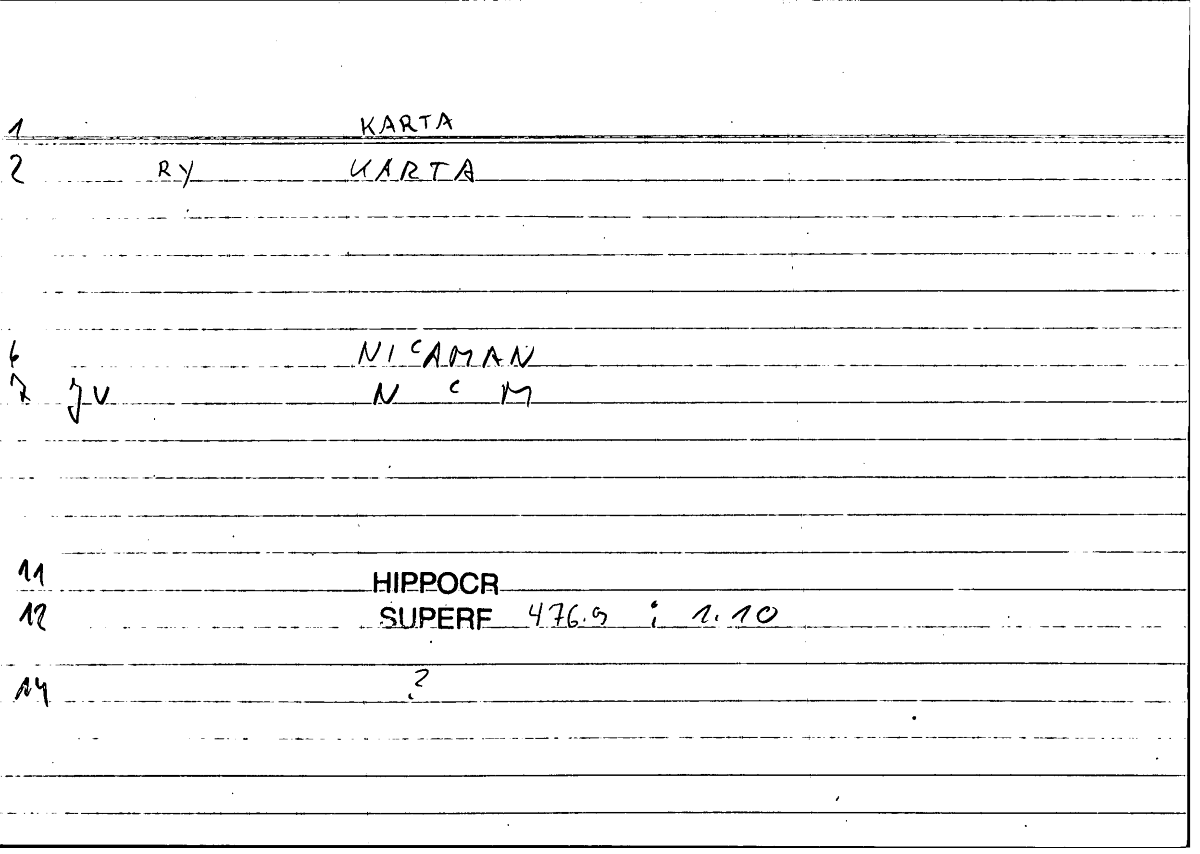 1 KARTA
2 RY KARTA
6 NICAMAN
7 JV N C M
11 HIPPOCR
12 SUPERF 476.9 ; 1.10
14 ?